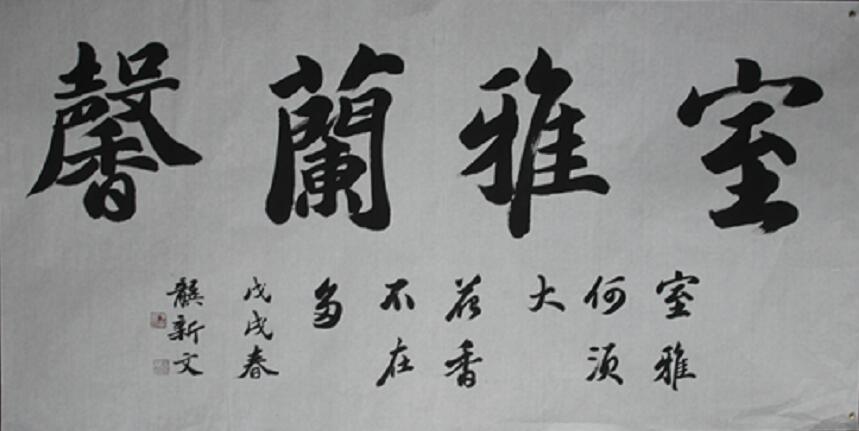 室雅蘭馨
室雅
何須
大
花香
不在
多
戊戌春
新文